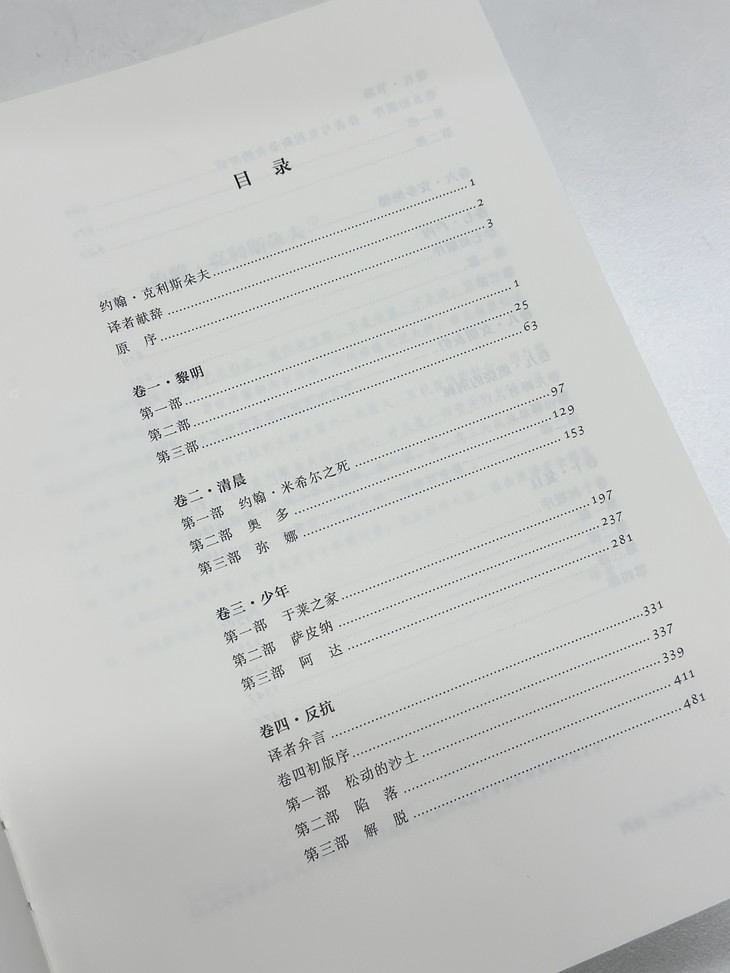 目 录
约翰·克利斯朵夫 1
译者献辞 2
原 序 3
卷一·黎明
第一部 1
第二部 25
第三部 63
卷二·清晨
第一部 约翰·米希尔之死 97
第二部 奥 多 129
第三部 弥 娜 153
卷三·少年
第一部 于莱之家 197
第二部 萨皮纳 237
第三部 阿 达 281
卷四·反抗
译者弁言 331
卷四初版序 337
第一部 松动的沙土 339
第二部 陷 落 411
第三部 解 脱 481